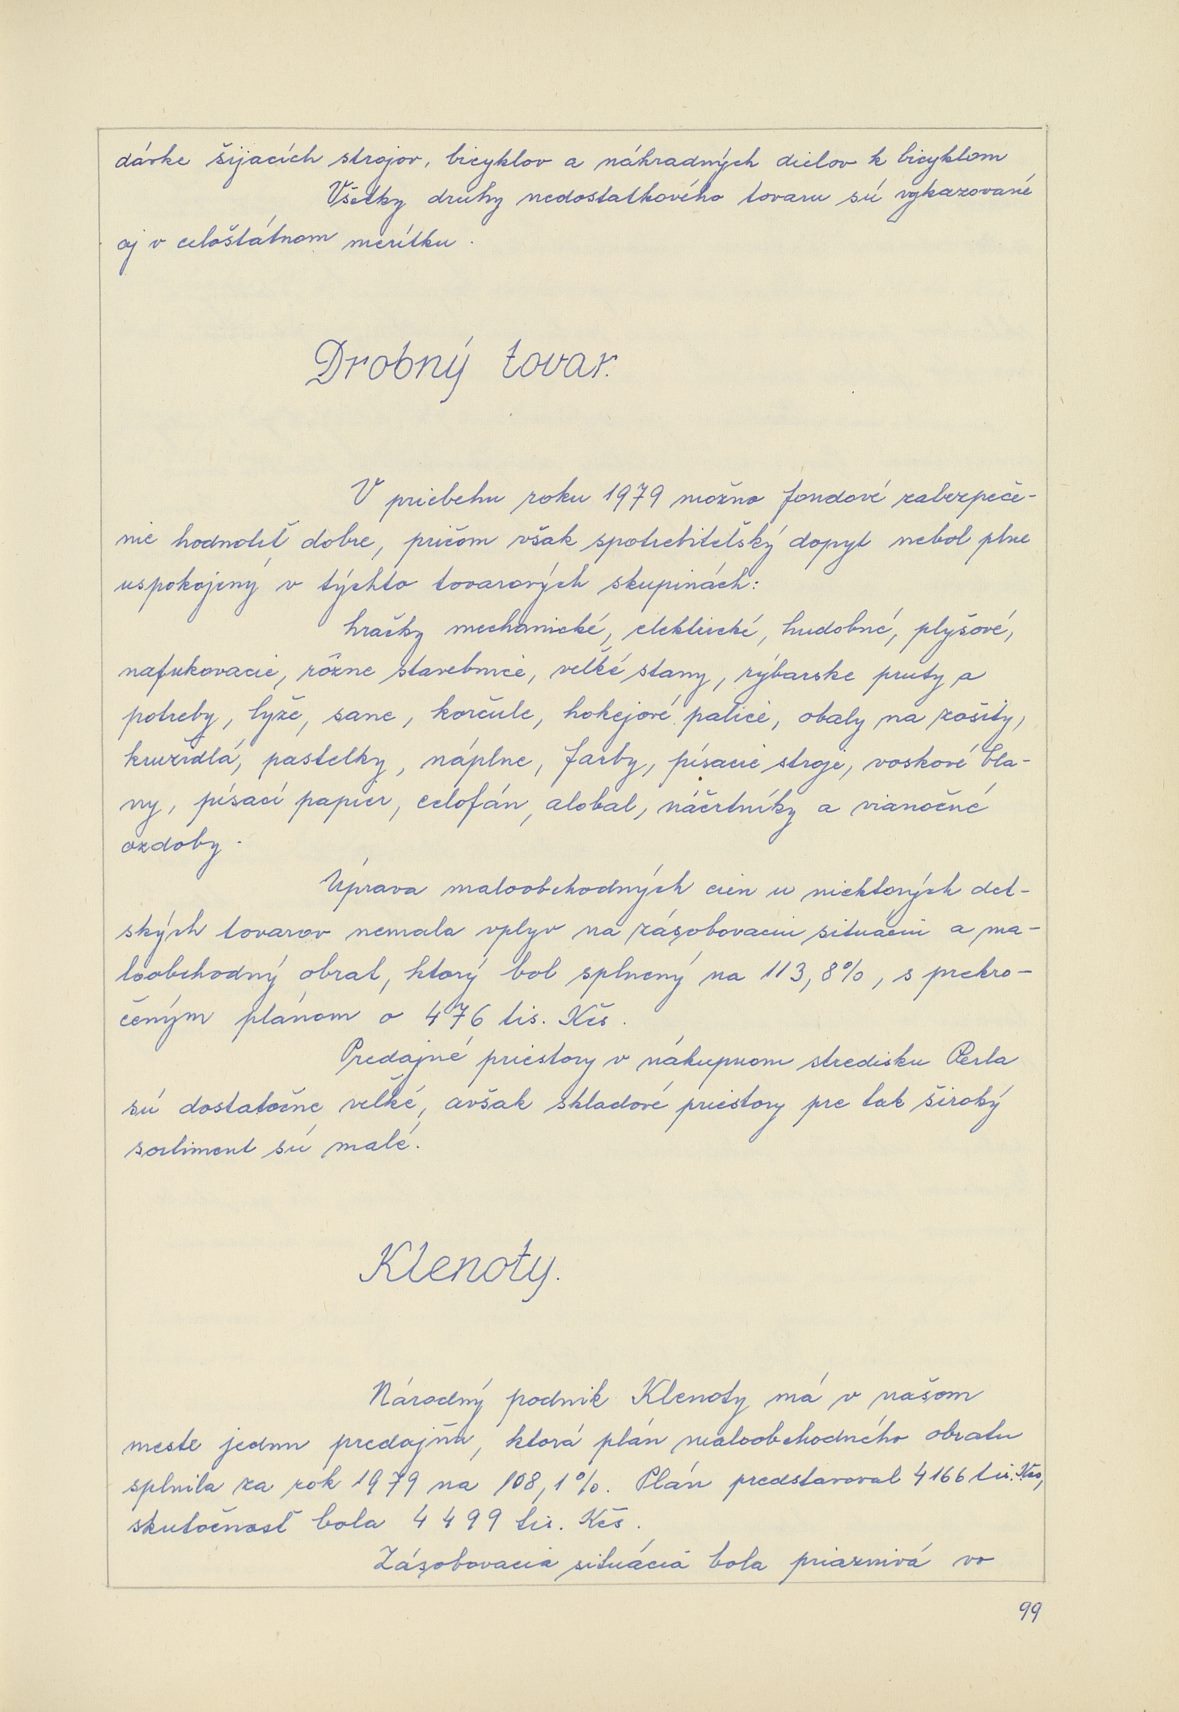 dávke šijacích strojov, bicyklov a náhradných dielov k bicyklom
Všetky druhy nedostatkového tovaru sú vykazované
aj v celoštátnom merítku.
Drobný tovar.
V priebehu roku 1979 možno fondové zabezpeče-
nie hodnotiť dobre, pričom však spotrebiteľský dopyt nebol plne
uspokojený v týchto tovarových skupinách:
hračky mechanické, elektrické, hudobné, plyšové,
nafukovacie, rôzne stavebnice, veľké stany, rybárske pruty a
potreby, lyže, sane, korčule, hokejové palice, obaly na zošity,
kružidlá, pastelky, náplne, farby, písacie stroje, voskové bla-
ny, písací papier, celofán, alobal, náčrtníky a vianočné
ozdoby.
Úprava maloobchodných cien u niektorých det-
ských tovarov nemala vplyv na zásobovaciu situáciu a ma-
loobchodný obrat, ktorý bol splnený na 113,8%, s prekro-
čeným plánom o 476 tis. Kčs.
Predajné priestory v nákupnom stredisku Perla
sú dostatočne veľké, avšak skladové priestory pre tak široký
sortiment sú malé.
Klenoty.
Národný podnik Klenoty má v našom
meste jednu predajňu, ktorá plán maloobchodného obratu
splnila za rok 1979 na 108,1%. Plán predstavoval 4166 tis. Kčs,
skutočnosť bola 4499 tis. Kčs.
Zásobovacia situácia bola priaznivá vo
99